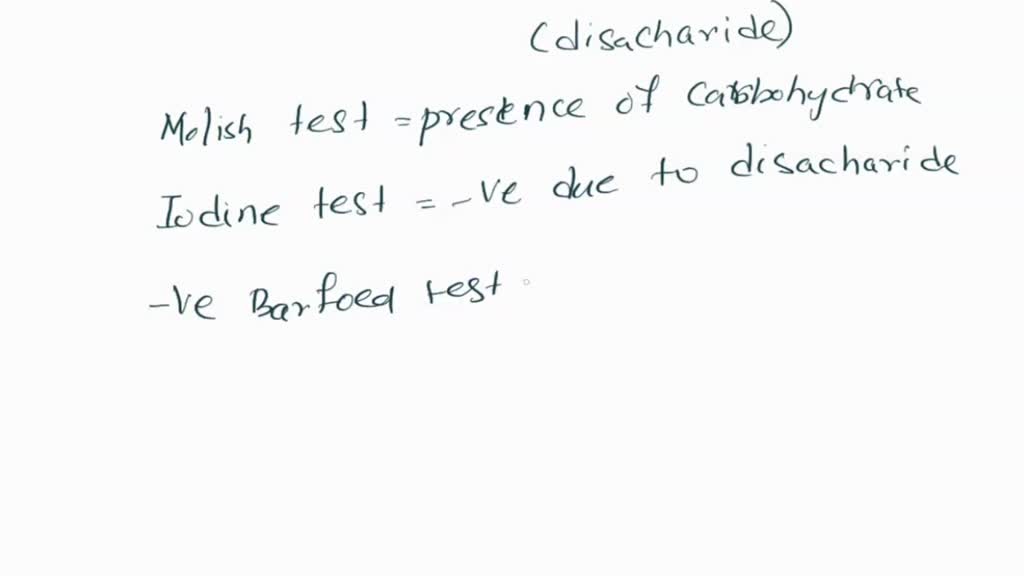 (disacharide)
Molish test = presence of Carbohydrate
Iodine test = -ve due to disacharide
-ve Barfoed test